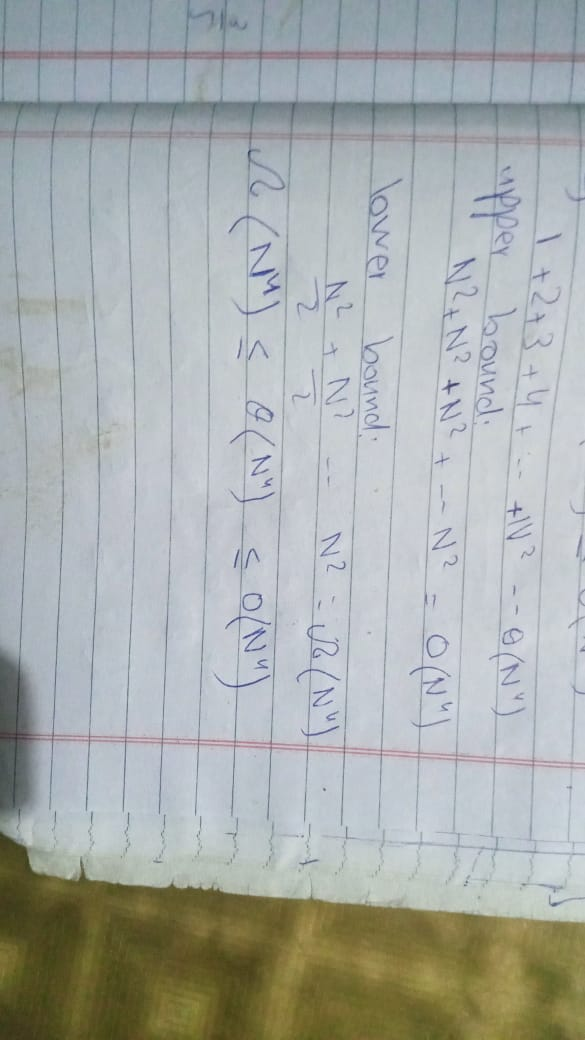 1 + 2 + 3 + 4 + -- + N² -- θ(N⁴)
upper bound:
N² + N² + N² + -- N² = O(N⁴)
lower bound:
N²/2 + N²/2 -- N² = Ω(N⁴)
Ω(N⁴) ≤ θ(N⁴) ≤ O(N⁴)